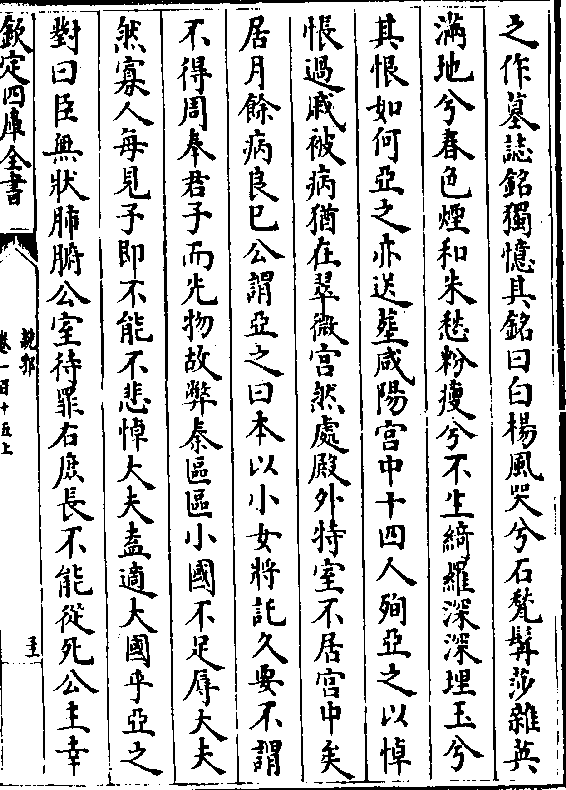 之作墓誌銘獨憶其銘曰白楊風哭兮石甃髯莎雜英
滿地兮春色煙和朱愁粉瘦兮不生綺羅深深埋玉兮
其恨如何亞之亦送塟咸陽宫中十四人殉亞之以悼
悵過戚被病猶在翠微宫然處殿外特室不居宫中矣
居月餘病良已公謂亞之曰本以小女將託久要不謂
不得周奉君子而先物故弊秦區區小國不足辱大夫
然寡人每見子即不能不悲悼大夫盍適大國乎亞之
對曰臣無狀肺腑公室待罪右庶長不能從死公主幸
欽定四庫全書
說郛
卷一百十五上